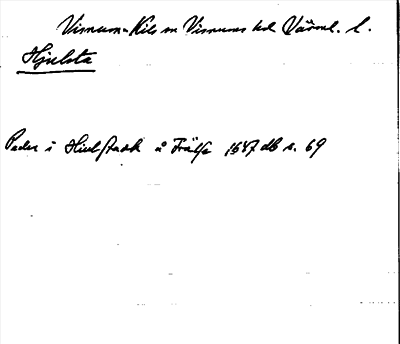 Visnum-Kils sn Visnums hd Värml. l.
Hjulsta
Peder i Hiulstadh å Trälse 1687 db s. 69